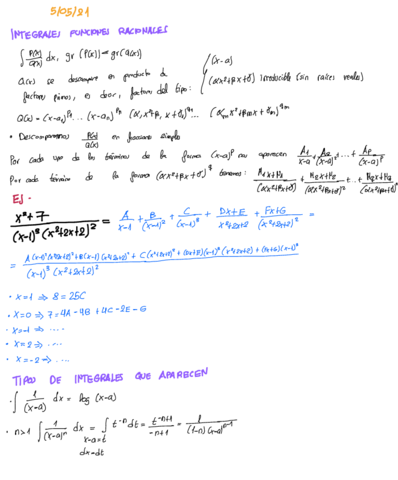 5/05/21
INTEGRALES FUNCIONES RACIONALES
∫ P(x)/Q(x) dx, gr (P(x)) < gr(Q(x))
(x-a)
Q(x) se descompone en producto de
factores primos, es decir, factores del tipo:
(αx²+βx+δ) irreducible (sin raíces reales)
Q(x) = (x-a₁)^p₁ ... (x-aₙ)^pₙ (α₁x²+β₁x+δ₁)^q₁ ... (αₘx²+βₘx+δₘ)^qₘ
• Descomponemos P(x)/Q(x) en fracciones simples
Por cada uno de los términos de la forma (x-a)^p nos aparecen A₁/(x-a) + A₂/(x-a)² + ... + Aₚ/(x-a)^p
Por cada término de la forma (αx²+βx+δ)^q tenemos:
EJ.
(x²+7)/((x-1)³(x²+2x+2)²) = A/(x-1) + B/(x-1)² + C/(x-1)³ + (Dx+E)/(x²+2x+2) + (Fx+G)/(x²+2x+2)² =
• x=1 ⇒ 8 = 25C
• x=0 ⇒ 7 = 4A - 4B + 4C - 2E - G
• x=-1 ⇒ ....
• x=2 ⇒ ....
• x=-2 ⇒ ....
TIPO DE INTEGRALES QUE APARECEN
• ∫ 1/(x-a) dx = log (x-a)
• n>1 ∫ 1/(x-a)ⁿ dx = ∫ t⁻ⁿ dt = t⁻ⁿ⁺¹/(-n+1) = 1/((1-n)(x-a)ⁿ⁻¹)
x-a=t
dx=dt